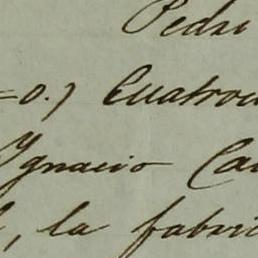 Pedr
=0.) Cuatroc
Ygnacio Ca
l, la fabri